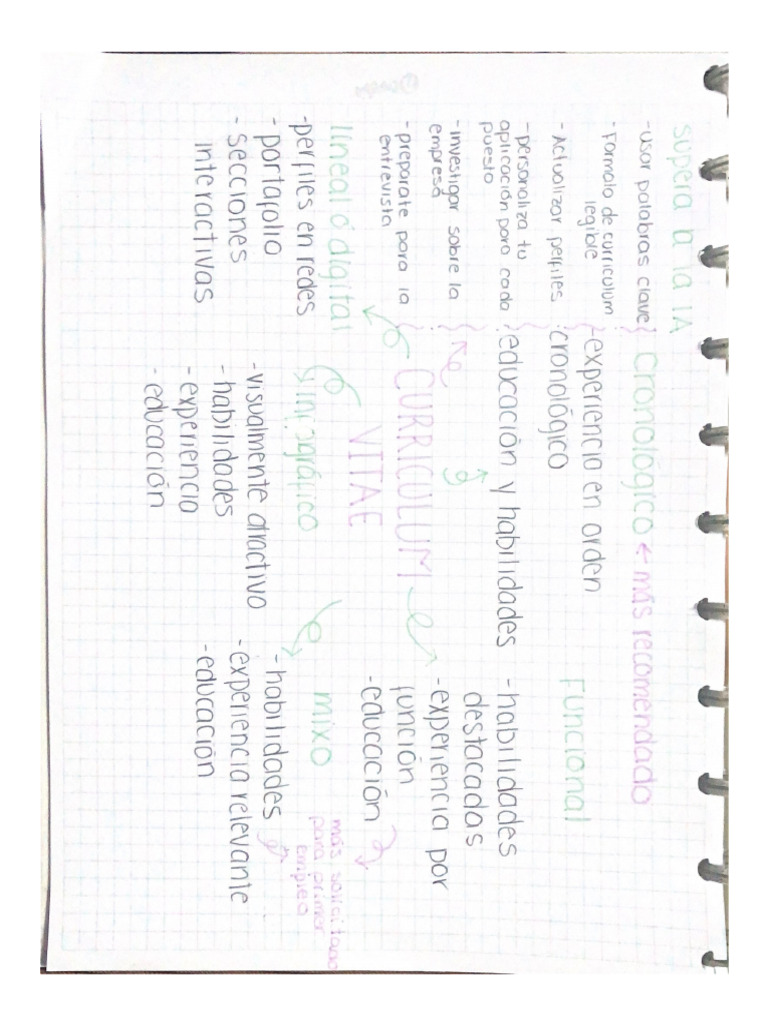 supera a la IA
-usar palabras clave
- Formato de curriculum
legible
- Actualizar perfiles
- personaliza tu
aplicación para cada
puesto
- investigar sobre la
empresa
- preparate para la
entrevista
Cronológico ← más recomendado
-experiencia en orden
cronológico
educación y habilidades
Funcional
- habilidades
destacadas
- experiencia por
función
- educación
CURRICULUM
VITAE
lineal ó digital
-perfiles en redes
- portafolio
- secciones
interactivas
-visualmente atractivo
- habilidades
- experiencia
- educación
mixo
más solicitado
para primer
empleo
- habilidades
- experiencia relevante
- educación